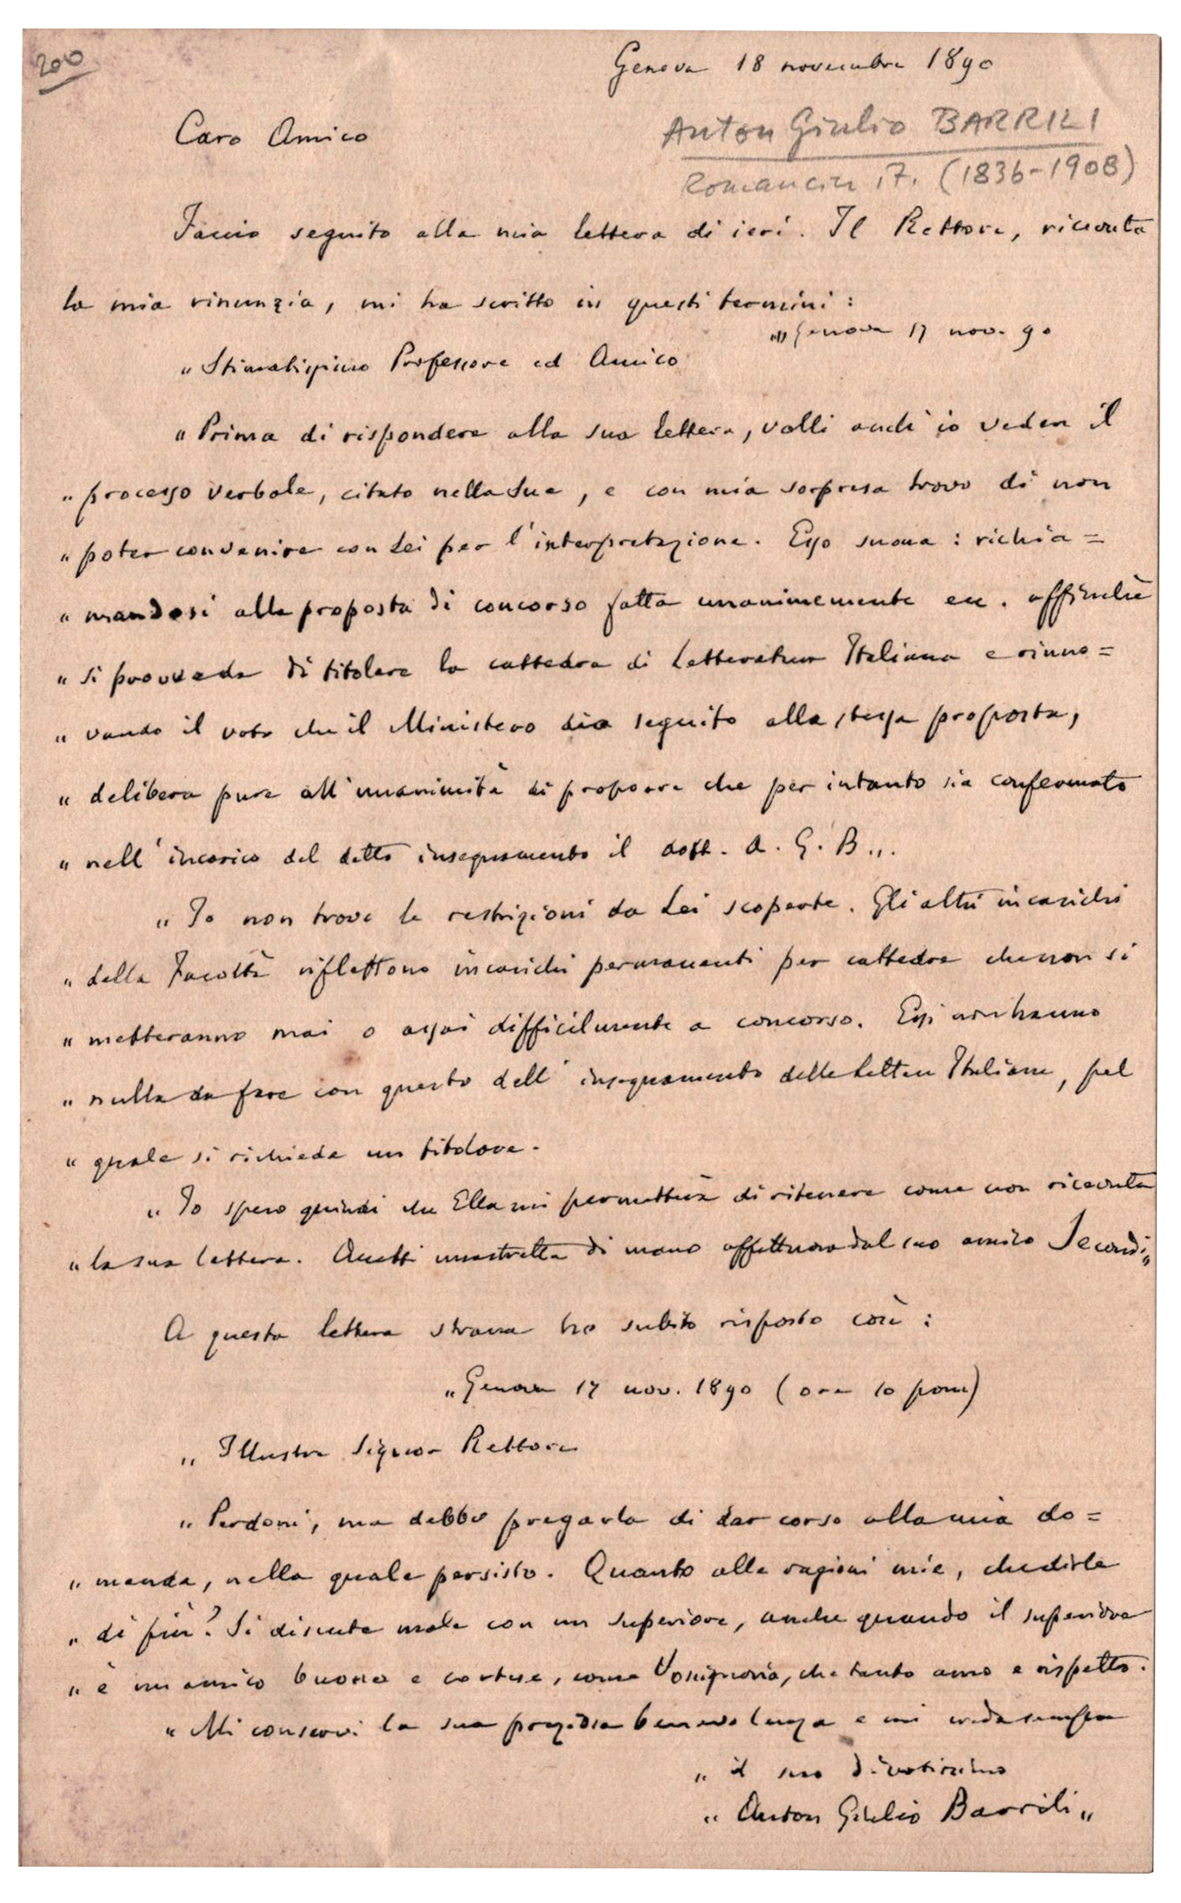 200
Genova 18 novembre 1890
Caro Amico
Anton Giulio BARRILI
Romancier it. (1836-1908)
Faccio seguito alla mia lettera di ieri. Il Rettore, ricevuta
la mia rinunzia, mi ha scritto in questi termini:
"Genova 17 nov. 90
"Stimatissimo Professore ed Amico
"Prima di rispondere alla sua lettera, volli anch'io veder il
"processo verbale, citato nella sua, e con mia sorpresa trovo di non
"poter convenire con Lei per l'interpretazione. Esso suona: richia=
"mandosi alla proposta di concorso fatta unanimemente ecc. affinchè
"si provveda di titolare la cattedra di Letteratura Italiana e rinno=
"vando il voto che il Ministero dia seguito alla stessa proposta,
"delibera pure all'unanimità di proporre che per intanto sia confermato
"nell'incarico del detto insegnamento il dott. A. G. B...
"Io non trovo le restrizioni da Lei scoperte. Gli altri incarichi
"della Facoltà riflettono incarichi permanenti per cattedre che non si
"metteranno mai o assai difficilmente a concorso. Essi non hanno
"nulla da fare con questo dell'insegnamento delle Lettere Italiane, pel
"quale si richiede un titolare.
"Io spero quindi che Ella mi permetterà di ritenere come non ricevuta
"la sua lettera. Accetti una stretta di mano affettuosa dal suo amico Secondi"
A questa lettera strana ho subito risposto così:
"Genova 17 nov. 1890 (ore 10 pom)
"Illustre Signor Rettore
"Perdoni, ma debbo pregarla di dar corso alla mia do=
"manda, nella quale persisto. Quanto alle ragioni mie, che dirle
"di più? Si discute male con un superiore, anche quando il superiore
"è un amico buono e cortese, come Vossignoria, che tanto amo e rispetto.
"Mi conservi la sua preziosa benevolenza e mi creda sempre
"il suo divotissimo
"Anton Giulio Barrili"